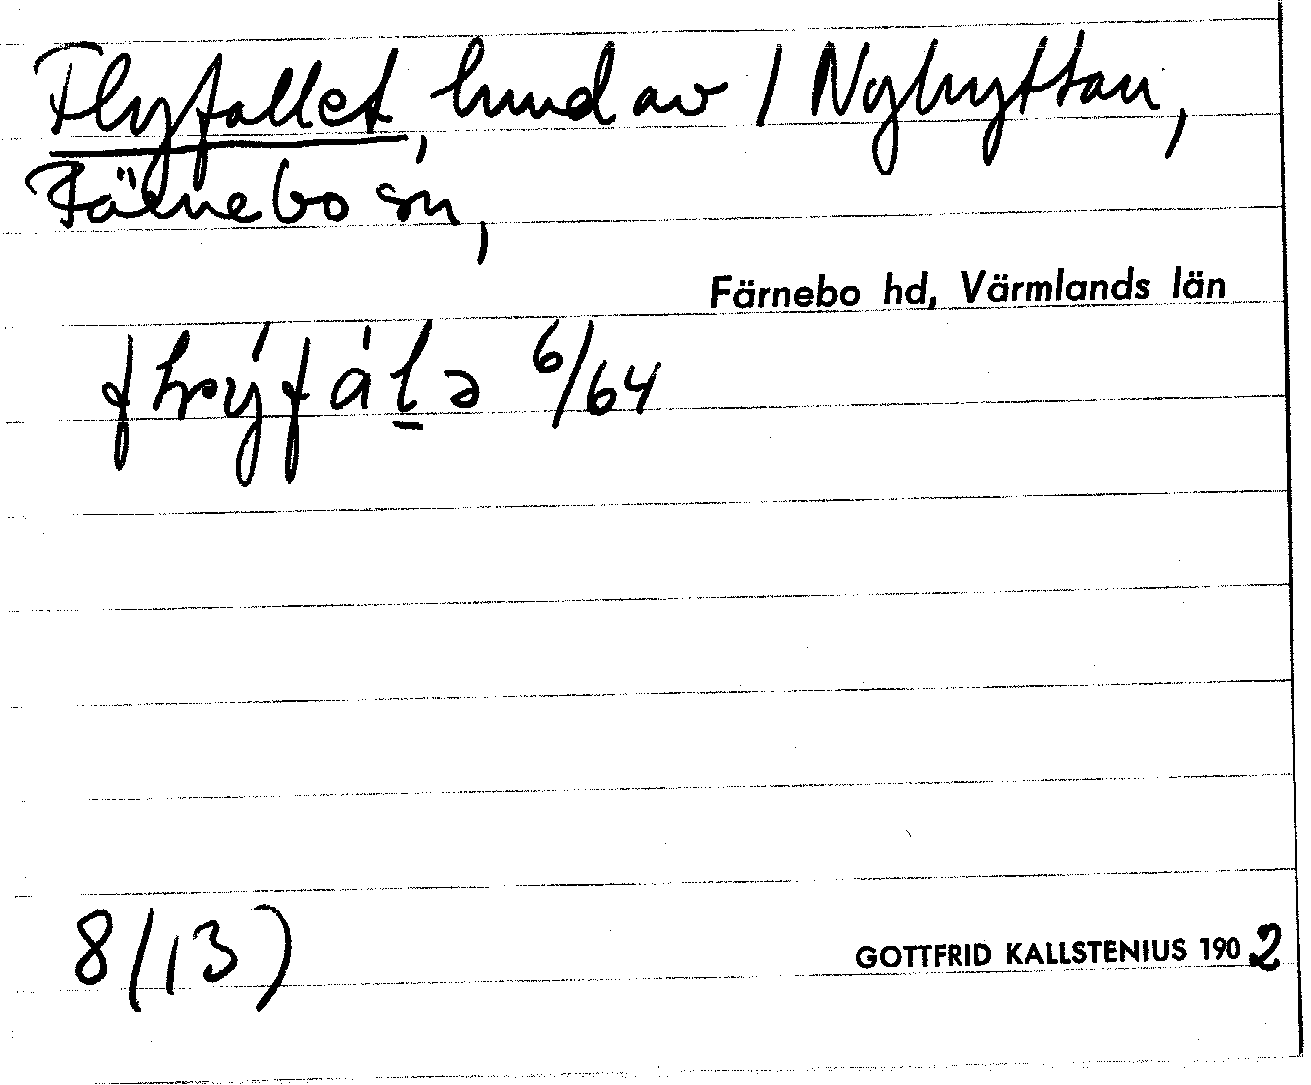 Flyfallet, hmd av 1 Nyhyttan,
Färnebo sn,
Färnebo hd, Värmlands län
6/64
8/13)
GOTTFRID KALLSTENIUS 1902